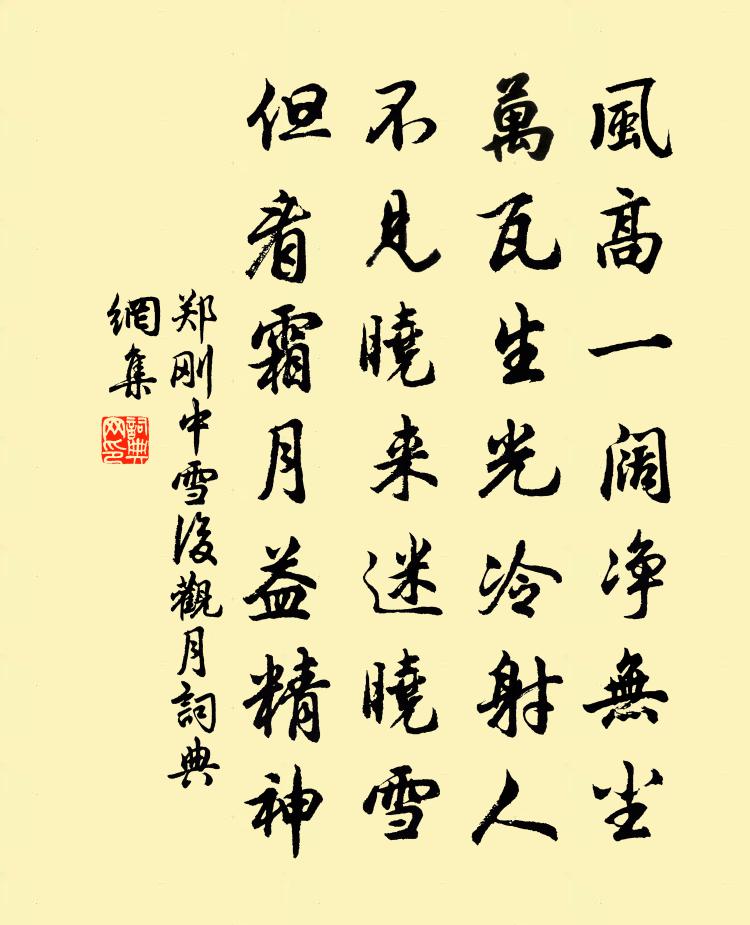 風高一阔净無尘
萬瓦生光冷射人
不見曉来迷曉雪
但看霜月益精神
郑刚中雪後觀月詞典
網集
詞典
网印